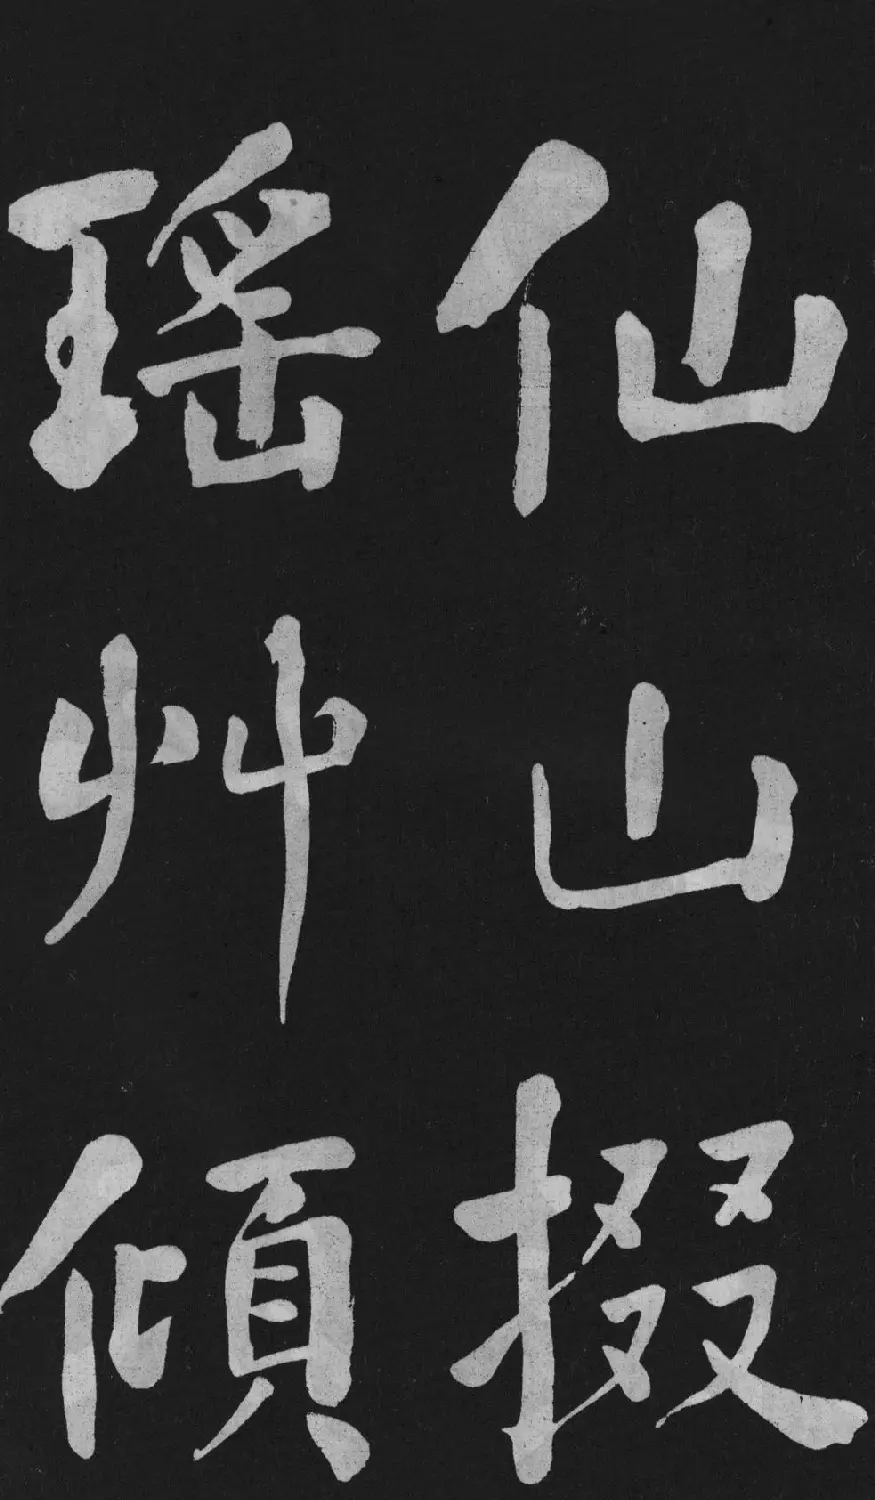 仙山掇
瑶艸傾